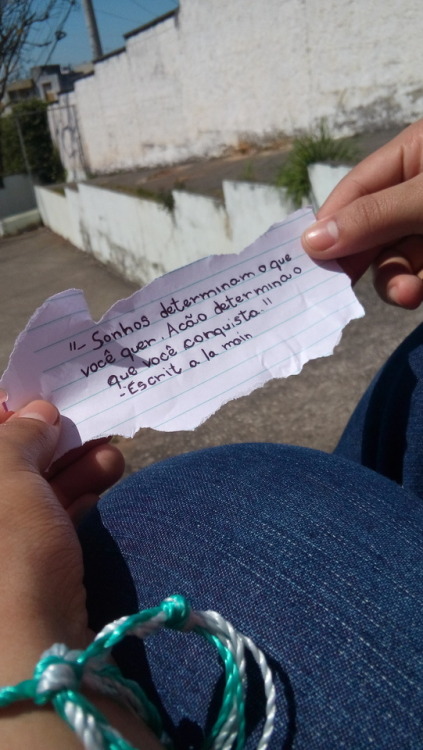 "- Sonhos determinam o que
você quer. Acão determina o
que você conquista."
- Escrit a la main